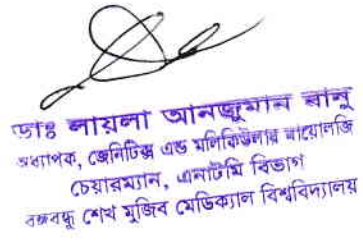 ডাঃ লায়লা আনজুমান বানু
অধ্যাপক, জেনিটিক্স এন্ড মলিকিউলার বায়োলজি
চেয়ারম্যান, এনাটমি বিভাগ
বঙ্গবন্ধু শেখ মুজিব মেডিক্যাল বিশ্ববিদ্যালয়